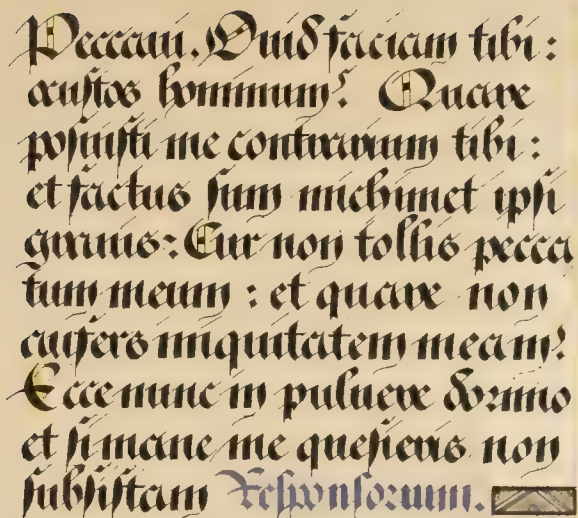 Peccaui. Quid faciam tibi :
o custos hominum? Quare
posuisti me contrarium tibi :
et factus sum michimet ipsi
grauis: Cur non tollis pecca
tum meum : et quare non
aufers iniquitatem meam?
Ecce nunc in puluere dormio
et si mane me quesieris non
subsistam Responsorium.